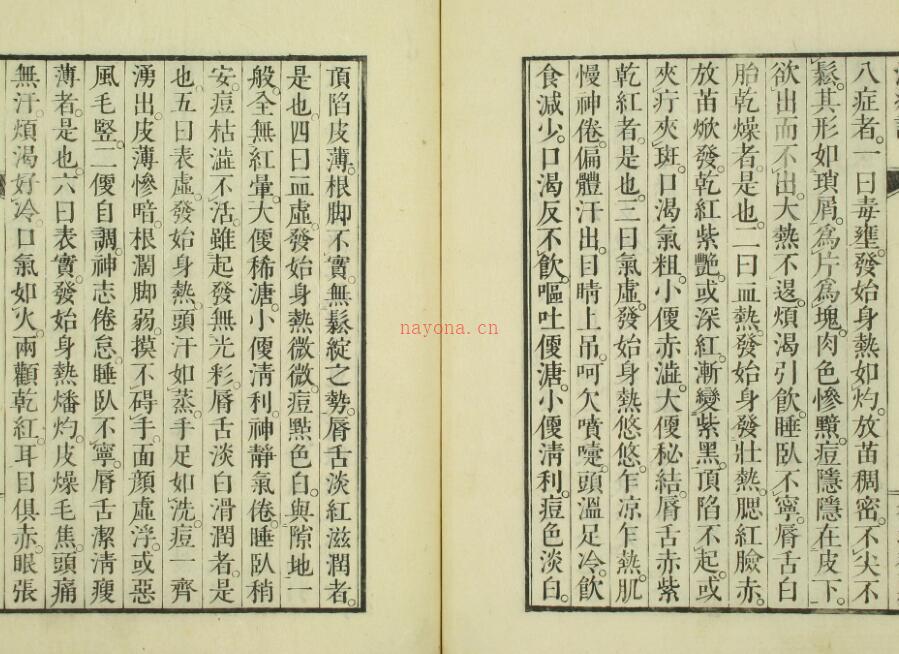 八症者。一曰毒壅。發始身熱如灼。放苗稠密。不尖不
鬆。其形如瑣屑。爲片爲塊。肉色慘黲。痘隱隱在皮下。
欲出而不出。大熱不退。煩渴引飲。睡臥不寧。脣舌白
胎乾燥者。是也。二曰血熱。發始身發壯熱。腮紅臉赤。
放苗焮發。乾紅紫艷。或深紅。漸變紫黑。頂陷不起。或
夾疔夾斑。口渴氣粗。小便赤澁。大便秘結。脣舌赤紫
乾紅者。是也。三曰氣虛。發始身熱悠悠。乍凉乍熱。肌
慢神倦。偏體汗出。目睛上吊。呵欠噴嚏。頭溫足冷。飲
食減少。口渴反不飲。嘔吐便溏。小便淸利。痘色淡白。
頂陷皮薄。根脚不實。無鬆綻之勢。脣舌淡紅滋潤者。
是也。四曰血虛。發始身熱微微。痘㸃色白。與隙地一
般。全無紅暈。大便稀溏。小便淸利。神靜氣倦。睡臥稍
安。痘枯澁不活。雖起發無光彩。脣舌淡白滑潤者。是
也。五曰表虛。發始身熱。頭汗如蒸。手足如洗。痘一齊
湧出。皮薄慘暗。根濶脚弱。摸不碍手。面顔虛浮。或惡
風毛竪。二便自調。神志倦怠。睡臥不寧。脣舌潔淸瘦
薄者。是也。六曰表實。發始身熱燔灼。皮燥毛焦。頭痛
無汗。煩渴好冷。口氣如火。兩顴乾紅。耳目俱赤。眼張
nayona.cn